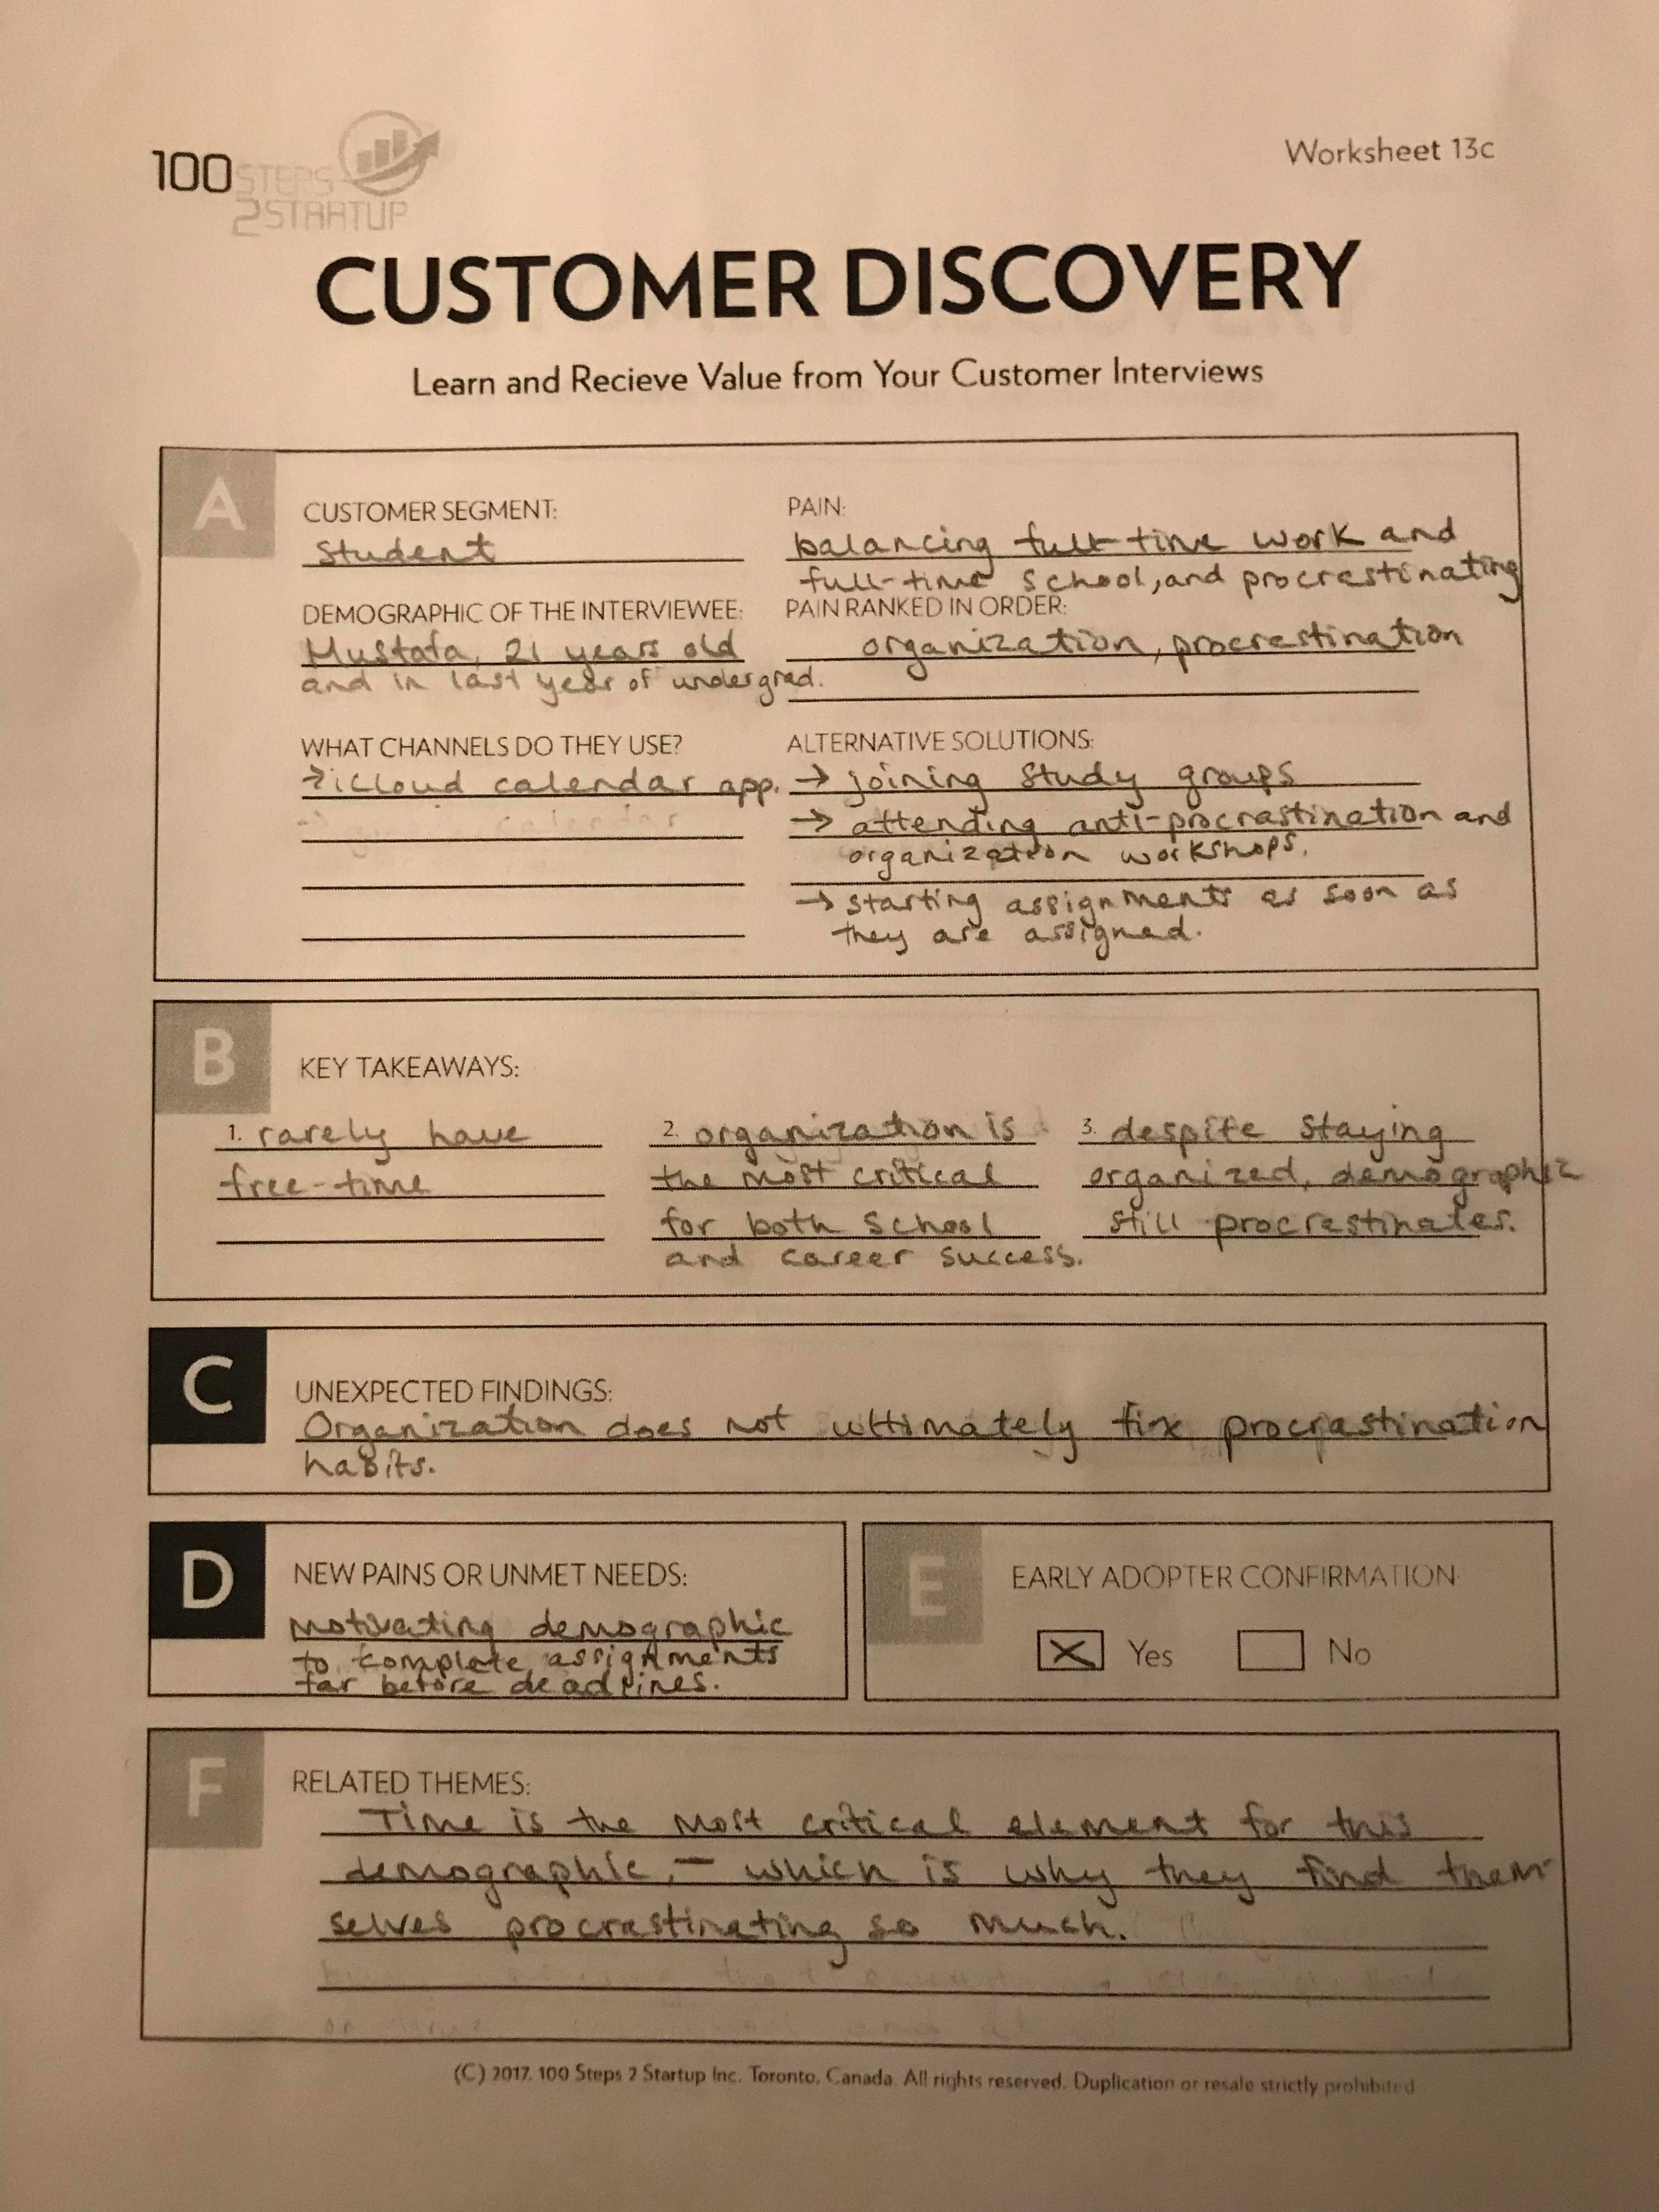 100 STEPS
2STARTUP
Worksheet 13c
CUSTOMER DISCOVERY
Learn and Recieve Value from Your Customer Interviews
A
CUSTOMER SEGMENT:
Student
PAIN:
balancing full-time work and
full-time school, and procrastinating
DEMOGRAPHIC OF THE INTERVIEWEE:
Mustafa, 21 years old
and in last year of undergrad.
PAIN RANKED IN ORDER:
organization, procrastination
WHAT CHANNELS DO THEY USE?
→ iCloud calendar app.
calendar
ALTERNATIVE SOLUTIONS:
→ joining study groups
→ attending anti-procrastination and
organization workshops.
→ starting assignments as soon as
they are assigned.
B
KEY TAKEAWAYS:
1. rarely have
free-time
2. organization is
the most critical
for both school
and career success.
3. despite staying
organized, demographic
still procrastinates.
C
UNEXPECTED FINDINGS:
Organization does not ultimately fix procrastination
habits.
D
NEW PAINS OR UNMET NEEDS:
motivating demographic
to complete assignments
far before deadlines.
E
EARLY ADOPTER CONFIRMATION:
X Yes No
F
RELATED THEMES:
Time is the most critical element for this
demographic, – which is why they find them-
selves procrastinating so much.
(C) 2017, 100 Steps 2 Startup Inc. Toronto, Canada. All rights reserved. Duplication or resale strictly prohibited